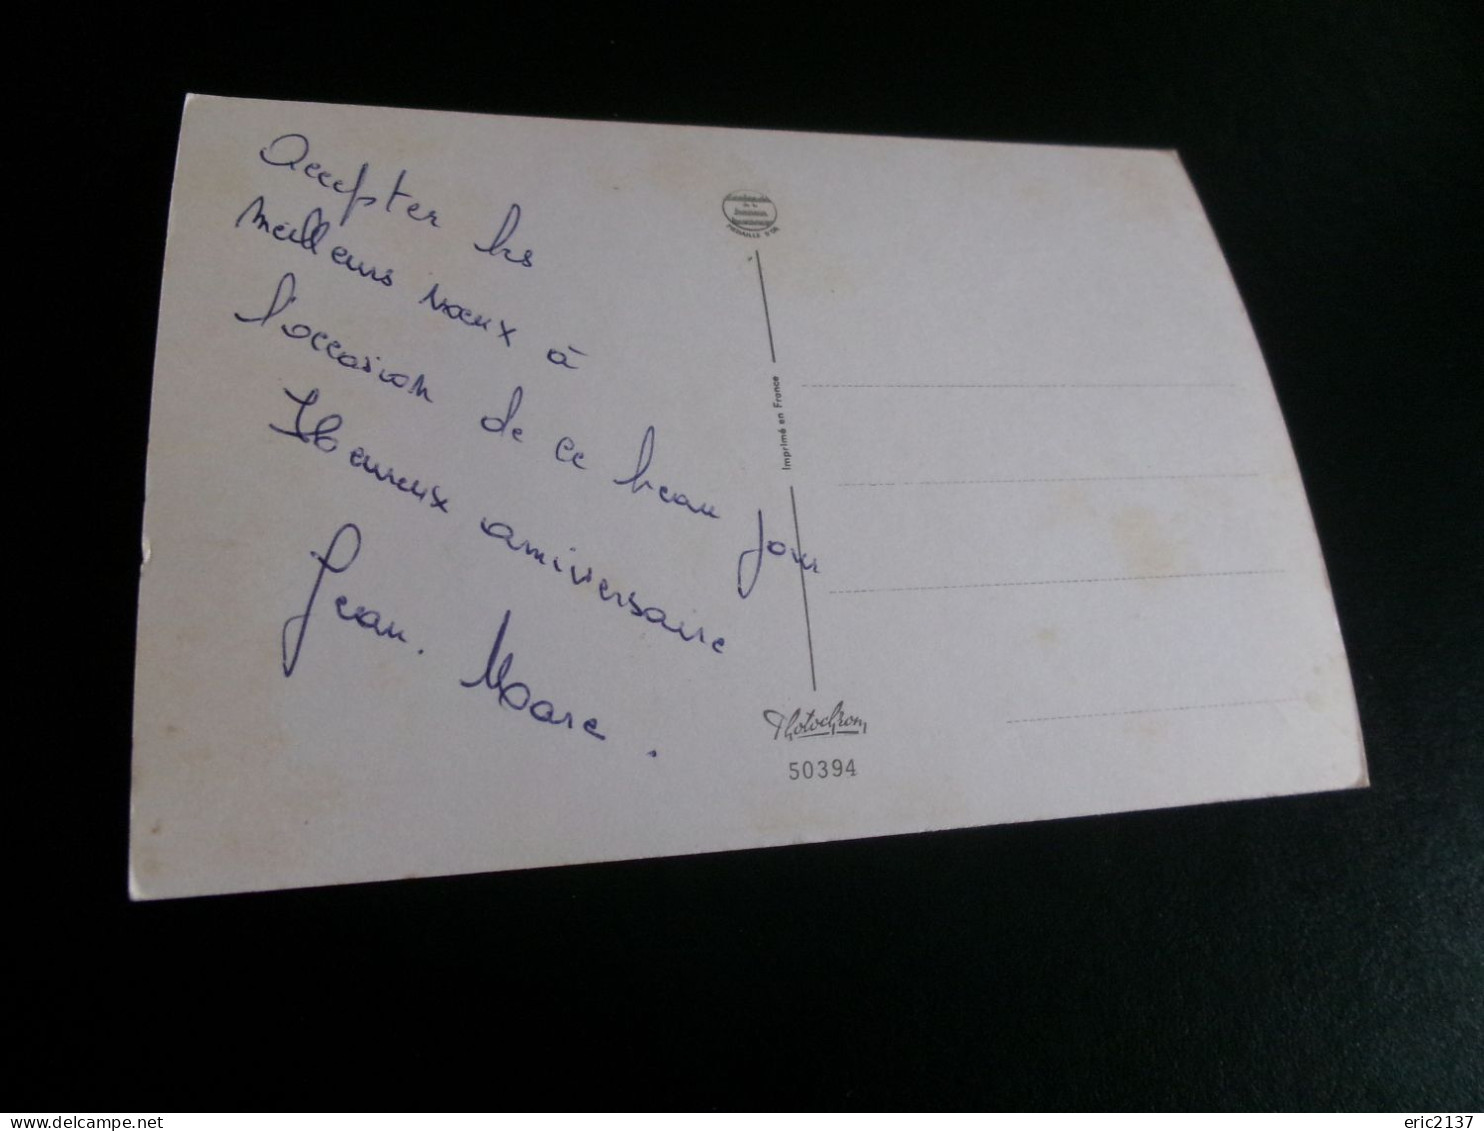 Accepter les
meilleurs voeux à
l'occasion de ce beau jour
Heureux anniversaire
Jean. Marc.
MEDAILLE D'OR
Imprimé en France
Photochrom
50394
www.delcampe.net
eric2137